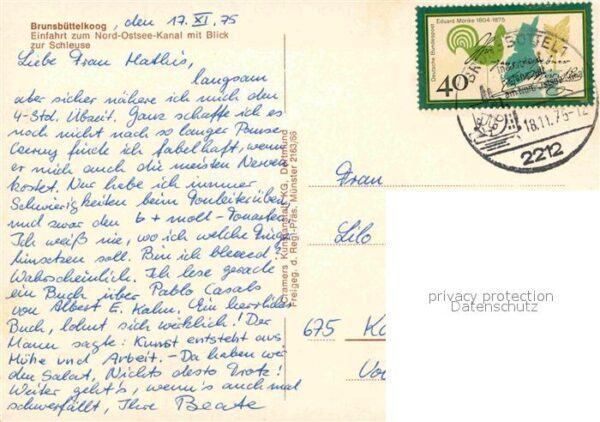 Brunsbüttelkoog, den 17. XI. 75
Einfahrt zum Nord-Ostsee-Kanal mit Blick
zur Schleuse
Liebe Frau Mathis,
langsam
aber sicher nähere ich mich den
4-Std. Übzeit. Ganz schaffe ich es
noch nicht nach so langer Pause,
Czerny finde ich fabelhaft, wenn
er mich auch die meisten Nerven
kostet. Nur habe ich immer
Schwierigkeiten beim Tonleiterüben
und zwar den b + moll-Tonarten.
Ich weiß nie, wo ich welche Finger
hinsetzen soll. Bin ich blööd?
Wahrscheinlich. Ich lese gerade
ein Buch über Pablo Casals
von Albert E. Kahn. Ein herrliches
Buch, lohnt sich wirklich! Der
Mann sagte: Kunst entsteht aus
Mühe und Arbeit. - Da haben wir
den Salat. Nichts desto Trotz!
Weiter geht's, wenn's auch mal
schwerfällt, Ihre Beate
Cramers Kunstanstalt KG, Dortmund
Freigeg. d. Reg.-Präs. Münster 2163/65
Eduard Mörike 1804-1875
Deutsche Bundespost
40
18.11.75-12
2212
Frau
Lilo
675 Ka
Vo
privacy protection
Datenschutz